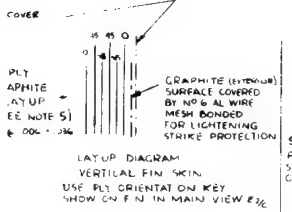 COVER
45 45 0
0
PLY
APHITE
AYUP
EE NOTE 5)
.006 = .036
GRAPHITE (EXTERIOR)
SURFACE COVERED
BY Nº 6 AL WIRE
MESH BONDED
FOR LIGHTENING
STRIKE PROTECTION
LAYUP DIAGRAM
VERTICAL FIN SKIN
USE PLY ORIENTATION KEY
SHOW ON FIN IN MAIN VIEW